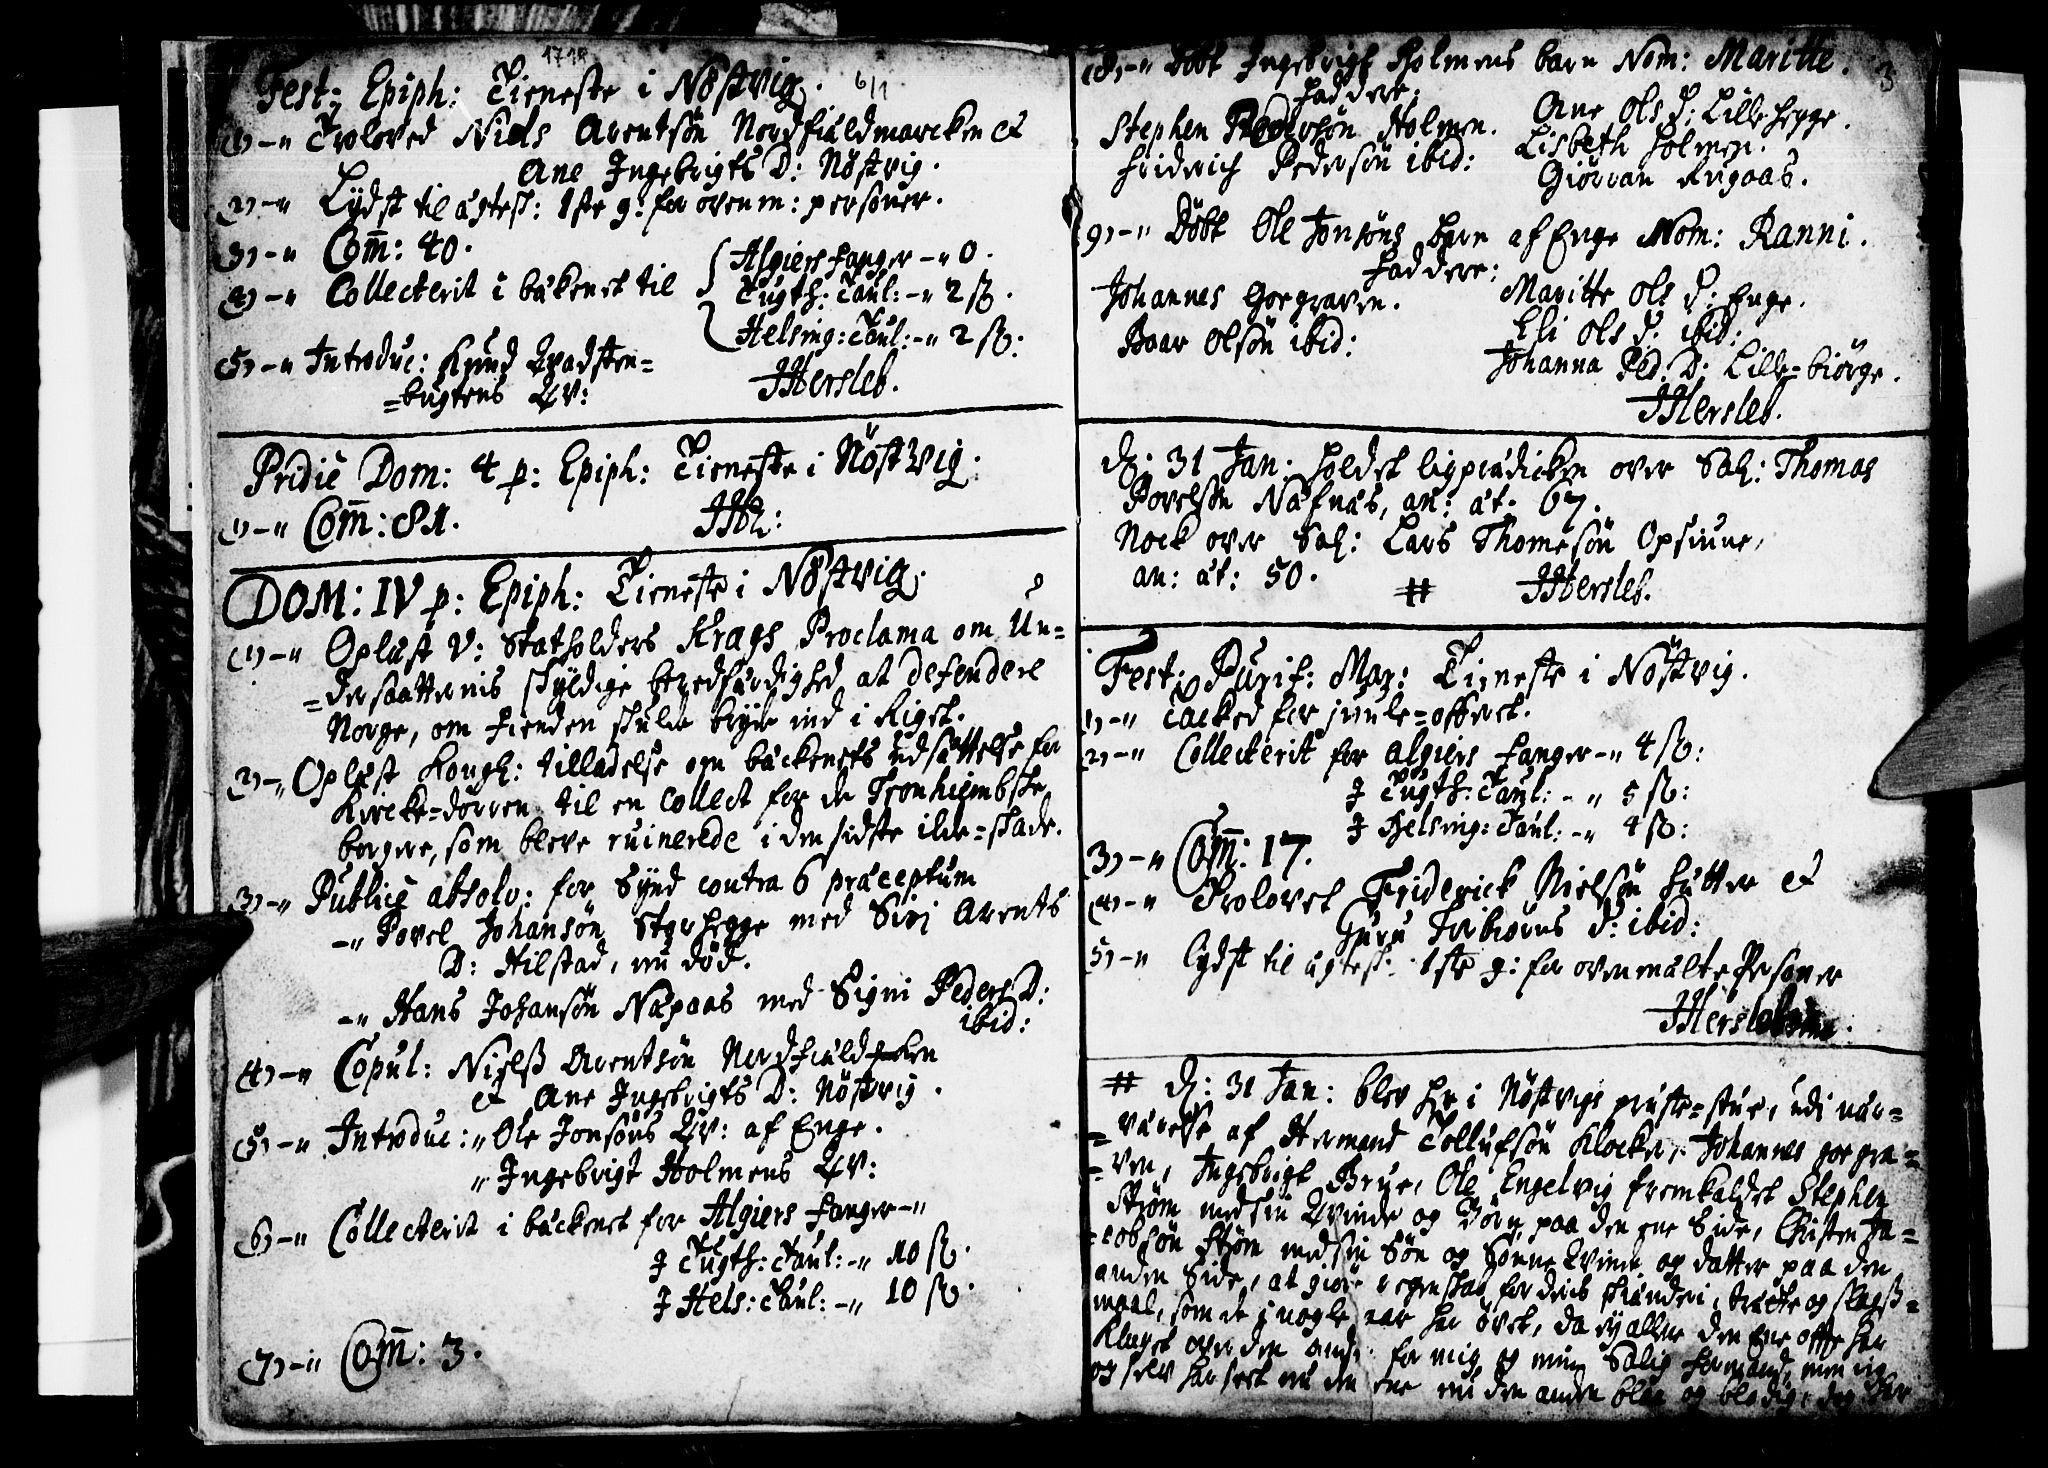 1718
Fest: Epiph: Tieneste i Nöstvig. 6/1
(1) -" Troloved Niels Arentsön Nordfiuldmarcken et
Ane Ingebrigts D: Nöstvig.
(2) -" Lydst til ägtesk: 1ste g: for ovenm: personer.
(3) -" Com̄: 40.
(4) -" Collecterit i bäkenet til
Algiers fanger -" 0.
Tugth: Taul: -" 2 ß.
Helsing: Taul: -" 2 ß:
(5) -" Introduc: Knud Qvadsten=
=bugtens Qv:
JHersleb.
Pridie Dom: 4 p: Epiph: Tieneste i Nöstvig.
(1) -" Com̄: 81.
JHb:
DOM: IV p: Epiph: Tieneste i Nöstvig.
(1) -" Opläst V: Statholders Krags Proclama om Un=
=dersaatternis skyldige beredfärdighed at defendere
Norge, om fienden skulde bryde ind i Riget.
(2) -" Opläst Kongl: tilladelse om bäckenets udsättelse for
Kircke=dörren til en Collect for de Tronhiembske
borgere, som bleve ruinerede i den sidste ilde=skade.
(3) -" Publice absolv: for Synd contra 6 præceptum
-" Povel Johansön Storhegge med Siri Arents
D: Hilstad, nu död.
-" Hans Johansön Næpaas med Signi Peders D:
ibid:
(4) -" Copul: Nielß Arentsön Nordfiuldmarcken
et Ane Ingebrigts D: Nöstvig.
(5) -" Introduc: " Ole Jonsöns Qv: af Enge.
" Ingebrigt Holmens Qv:
(6) -" Collecterit i bäckenet for Algiers fanger -"
f Tugth: Taul: -" 10 ß.
f Hels: Taul: -" 10 ß.
(7) -" Com̄: 3.
3
(8) -" Döbt Ingebrigt Holmens barn Nom: Maritte.
Faddere:
Stephen Pedersön Holmen. Ane Ols D: Lillehegge.
Friderich Pedersön ibid: Lisbeth Holmen.
Giörran Rugaas.
(9) -" Döbt Ole Jonsöns barn af Enge Nom: Ranni.
Faddere:
Johannes Gorgraven. Maritte Ols D: Enge.
Roar Olsön ibid: Eli Ols D: ibid:
Johanna Ped: D: Lille=biörge.
JHersleb.
D: 31 Jan: holdet ligprædicken over Sal: Thomas
Povelsön Næfnæs, an: æt: 67.
Nock over Sal: Lars Thomesön Opsiune,
an: æt: 50. # JHersleb.
Fest: Purif: Mar: Tieneste i Nöstvig.
1) -" Tacked for juule=offeret.
2) -" Collecterit for Algiers fanger -" 4 ß:
f Tugth: Taul: -" 5 ß:
f Helsing: Taul: -" 4 ß:
3) -" Com̄: 17.
(4) -" Trolovet Friderick Nielsön Hutter et
Guru Torbiörns D: ibid:
5) -" Lydst til ägtesk: 1ste g: for ovenmälte Personer
JHersleb
# D: 31 Jan: blev her i Nöstvigs præste=stue, udi när=
=värelse af Hermand Tollufsön Klocker, Johannes gorgra=
=ven, Ingebrigt Brue, Ole Engelvig fremkaldet Stephen
Ström med sin Qvinde og Börn paa den ene Side, Christen Ja=
=cobsön Ström med sin Sön og Sönne Qvinde og datter paa den
anden Side, at giöre regenskab for deris skiänderi, trätte og slagß=
maal, som de i nogle aar har övet, da ey allene den Ene offte har
klaget over den anden for mig og min Salig formand, men jeg
og selv har seet nu den ene nu den anden blaa og blodig,